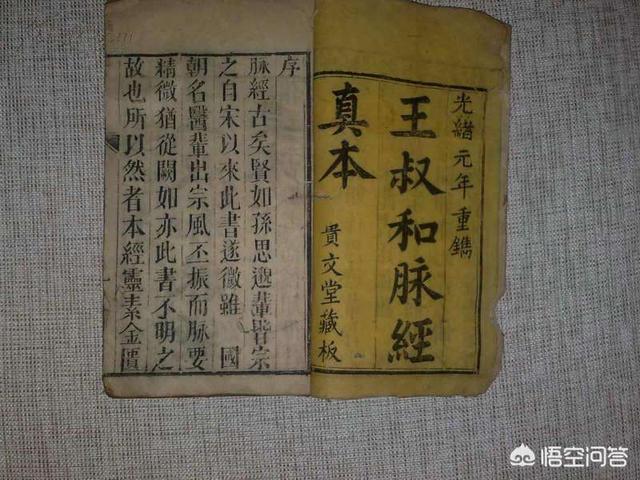 光緒元年重鐫
王叔和脉經
真本
貴文堂藏板
序
脉經古矣賢如孫思邈輩皆宗
之自宋以來此書遂微雖 國
朝名醫輩出宗風丕振而脉要
精微猶從闕如亦此書不明之
故也所以然者本經靈素金匱
悟空问答